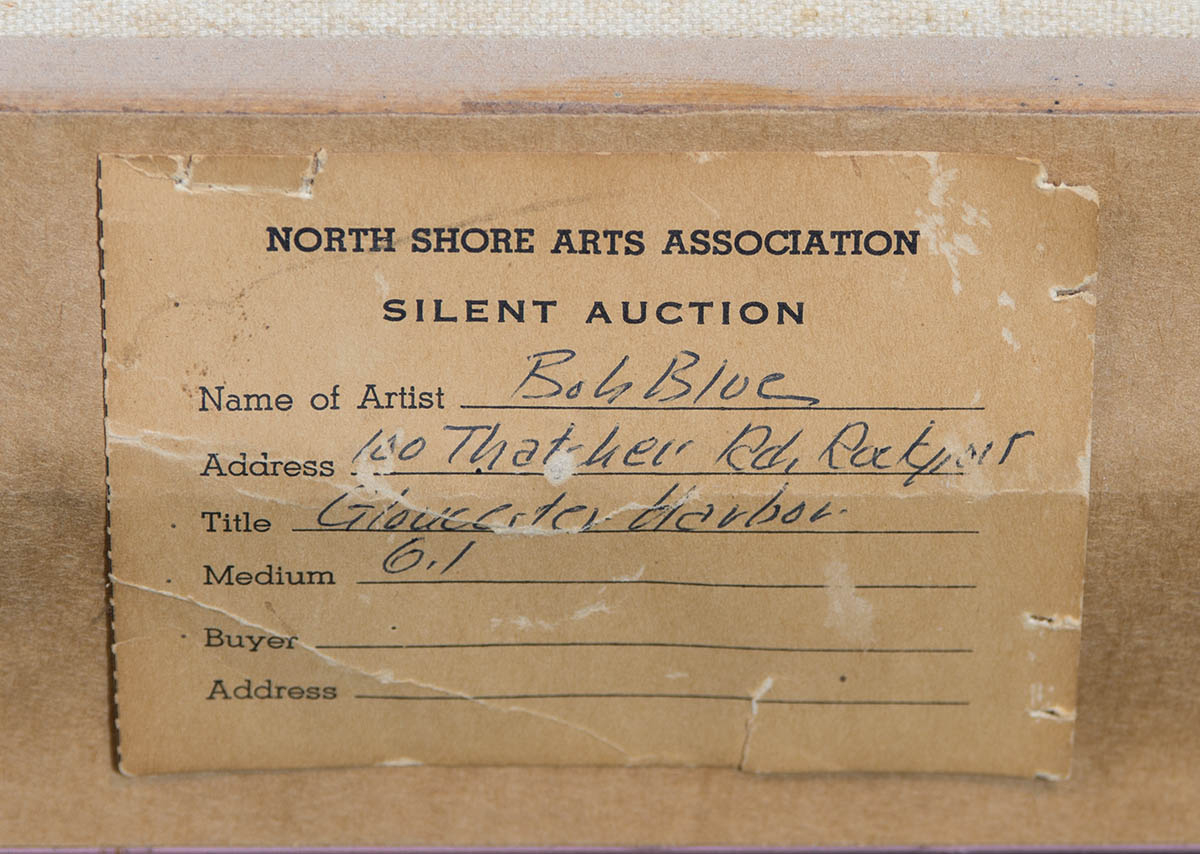 NORTH SHORE ARTS ASSOCIATION
SILENT AUCTION
Name of Artist Bob Blue
Address 100 Thatcher Rd, Rockport
Title Gloucester Harbor
Medium O.l
Buyer
Address